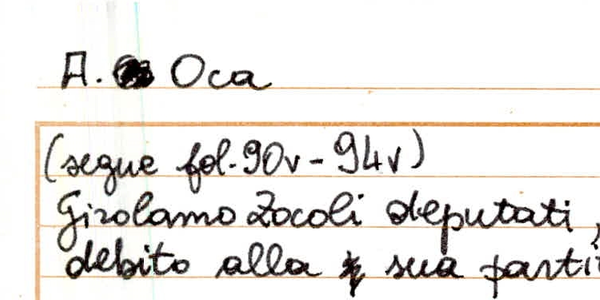 A. Oca
(segue fol. 90v - 94v)
Girolamo Zocoli deputati,
debito alla sua parti